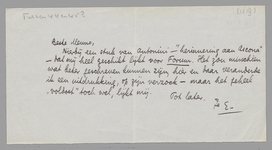 Beste Menno,
Hierbij een stuk van Antonini - "herinnering aan Ascona"
- dat mij heel geschikt lijkt voor Forum. Het zou misschien
wat beter geschreven kunnen zijn, hier en daar veranderde
ik een uitdrukking, of zijn verzoek - maar het geheel
"voldoet" toch wel, lijkt mij.
Tot later.
Je E.